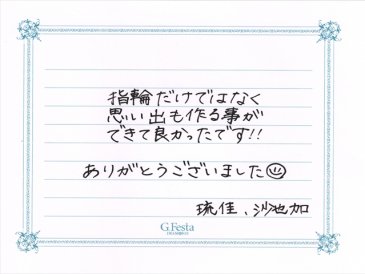 指輪だけではなく
思い出も作る事が
できて良かったです!!
ありがとうございました☺
琉佳、沙也加
G.Festa